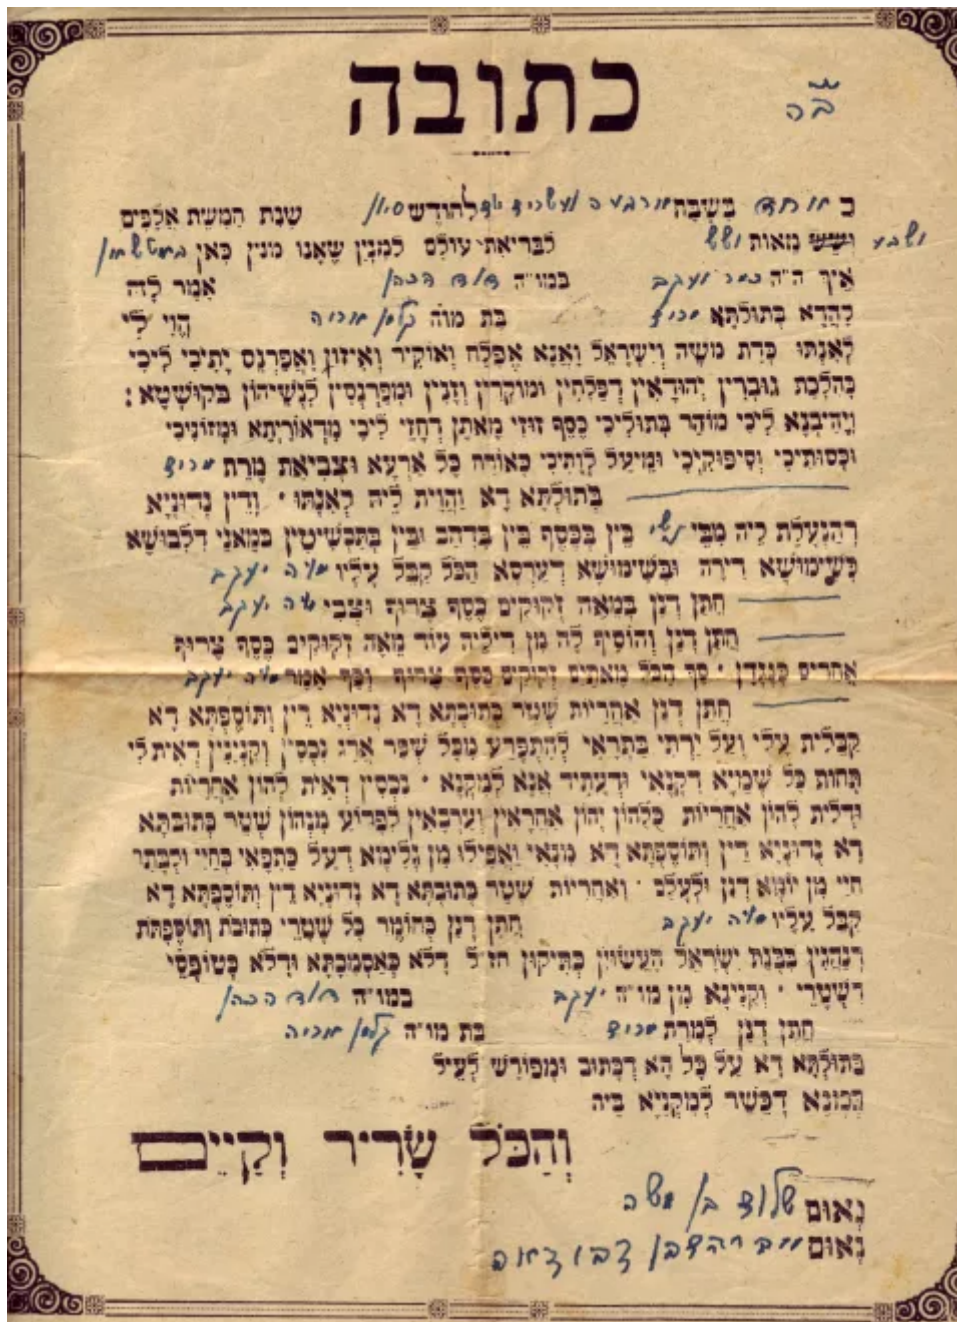 ב"ה
כתובה
ב אחד בְּשַׁבָּת ארבעה ועשרים יום לְחוֹדֶשׁ סיון שְׁנַת חֲמֵשֶׁת אֲלָפִים
ושבע מֵאוֹת ושש לִבְרִיאַת עוֹלָם לְמִנְיָן שֶׁאָנוּ מנין כַּאן
אֵיךְ ה״ה יעקב במו״ה דוד הכהן אָמַר לָהּ
לַהֲדָא בְּתוּלְתָּא מרים בַּת מוה קלמן אריה הֲוֵי לִי
לְאִנְתּוּ כְּדַת משֶׁה וְיִשְׂרָאֵל וַאֲנָא אֶפְלַח וְאוֹקִיר וְאֵיזוֹן וַאֲפַרְנֵס יָתִיכִי לִיכִי
כְּהִלְכַת גּוּבְרִין יְהוּדָאִין דְּפָלְחִין וּמוֹקְרִין וְזָנִין וּמְפַרְנְסִין לִנְשֵׁיהוֹן בְּקוּשְׁטָא:
וִיהִיבְנָא לִיכִי מוֹהַר בְּתוּלַיְכִי כֶּסֶף זוּזֵי מָאתָן דְּחָזֵי לִיכִי מִדְּאוֹרַיְתָא וּמְזוֹנַיְכִי
וּכְסוּתַיְכִי וְסִיפּוּקַיְכִי וּמֵיעַל לְוָתַיְכִי כְּאוֹרַח כָּל אַרְעָא וּצְבִיאַת מָרַת מרים
בְּתוּלְתָּא דָא וַהֲוַית לֵיהּ לְאִנְתּוּ · וְדֵין נְדוּנְיָא
דְהַנְעֲלַת לֵיהּ מִבֵּי נשי בֵּין בְּכֶסֶף בֵּין בִּדְהַב וּבֵין בְּתַכְשִׁיטִין בְּמָאנֵי דִלְבוּשָׁא
בְּשִׁימוּשָׁא דִירָה וּבְשִׁימוּשָׁא דְעַרְסָא הַכֹּל קִבֵּל עָלָיו מו״ה יעקב
חָתָן דְנָן בְּמֵאָה זְקוּקִים כֶּסֶף צָרוּף וּצְבִי מו״ה יעקב
חָתָן דְנָן וְהוֹסִיף לָהּ מִן דִּילֵיהּ עוֹד מֵאָה זְקוּקִים כֶּסֶף צָרוּף
אֲחֵרִים כְּנֶגְדָּן · סַךְ הַכֹּל מָאתַיִם זְקוּקִים כֶּסֶף צָרוּף וְכַךְ אָמַר מו״ה יעקב
חָתָן דְנָן אַחֲרָיוּת שְׁטַר כְּתוּבְתָּא דָא נְדוּנְיָא דֵין וְתוֹסֶפְתָּא דָא
קַבָּלִית עָלַי וְעַל יָרְתַי בַּתְרָאִי לְהִתְפָּרַע מִכָּל שְׁפַר אֲרַג נִכְסִין וְקִנְיָנִין דְּאִית לִי
תְּחוֹת כָּל שְׁמַיָּא דִּקְנָאִי וּדְעָתִיד אֲנָא לְמִקְנָא · נִכְסִין דְּאִית לְהוֹן אַחֲרָיוּת
וּדְלֵית לְהוֹן אַחֲרָיוּת כֻּלְּהוֹן יְהוֹן אַחֲרָאִין וְעַרְבָאִין לִפְרוֹעַ מִנְּהוֹן שְׁטַר כְּתוּבְתָּא
דָא נְדוּנְיָא דֵין וְתוֹסֶפְתָּא דָא מִנָּאִי וַאֲפִילוּ מִן גְּלִימָא דְעַל כַּתְפָּאִי בְּחַיֵּי וּלְבָתַר
חַיֵּי מִן יוֹמָא דְנָן וּלְעָלַם · וְאַחֲרָיוּת שְׁטַר כְּתוּבְתָּא דָא נְדוּנְיָא דֵין וְתוֹסֶפְתָּא דָא
קִבֵּל עָלָיו מו״ה יעקב חָתָן דְנָן כְּחוֹמֶר כָּל שְׁטָרֵי כְּתוּבֹת וְתוֹסֶפְתֹּת
דְּנַהֲגִין בִּבְנַת יִשְׂרָאֵל הָעֲשׂוּיִן כְּתִיקוּן חז״ל דְּלֹא כְּאַסְמַכְתָּא וּדְלֹא כְּטוֹפְסֵי
דִשְׁטָרֵי · וְקָנִינָא מִן מו״ה יעקב במו״ה דוד הכהן
חָתָן דְנָן לְמָרַת מרים בַּת מו״ה קלמן אריה
בְּתוּלְתָּא דָא עַל כָּל הָא דְּכָתוּב וּמְפוֹרָשׁ לְעֵיל
בְּמָנָא דְּכָשֵׁר לְמִקְנְיָא בֵּיהּ
וְהַכֹּל שָׁרִיר וְקַיָּים
נְאוּם שלום בן משה
נְאוּם